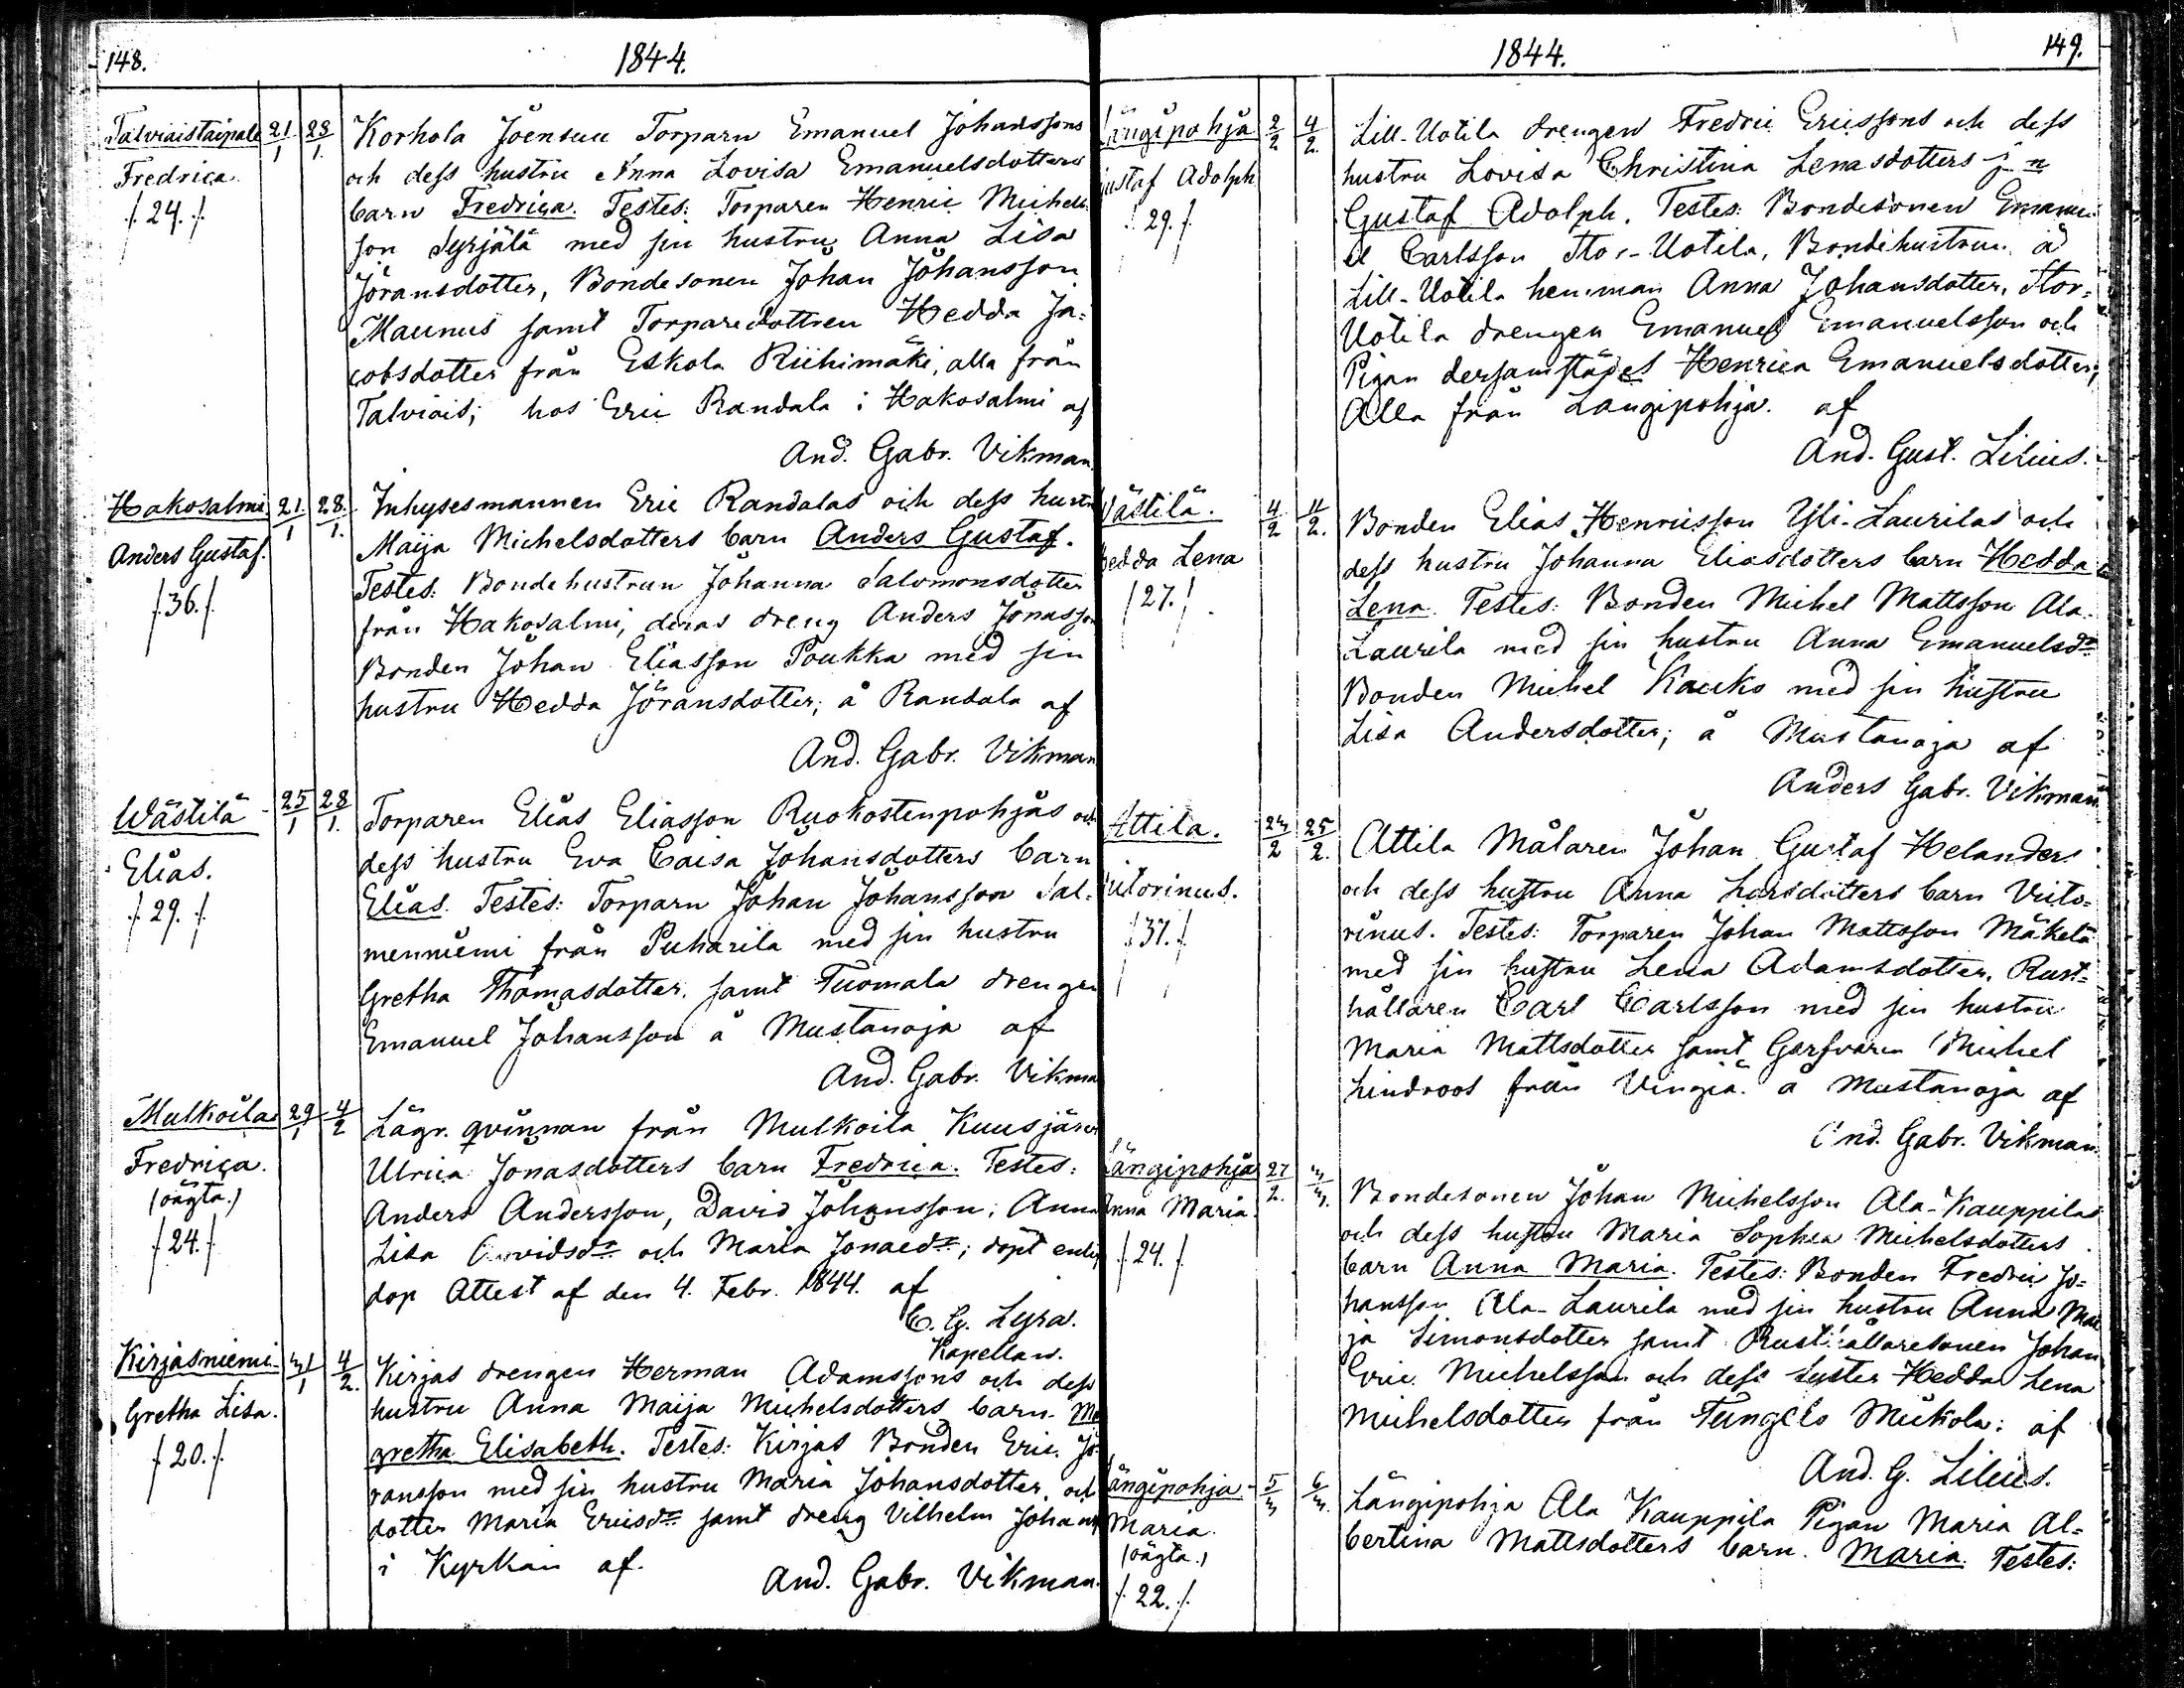 148.
1844.
Talviaistaipale 21/1 28/1.
Fredrica.
/.24./.
Korhola Joensuu Torparn Emanuel Johanssons
och dess hustru Anna Lovisa Emanuelsdotters
barn Fredrica. Testes: Torparen Henric Michels
son Syrjälä med sin hustru Anna Lisa
Jöransdotter, Bondesonen Johan Johansson
Maunus samt Torparedottren Hedda Ja=
cobsdotter från Eskola Riihimäki, alla från
Talviais; hos Eric Randala i Hakosalmi af
And. Gabr. Vikman.
Hakosalmi 21./1 28./1.
Anders Gustaf.
/.36./.
Inhysesmannen Eric Randalas och dess hustru
Maija Michelsdotters barn Anders Gustaf.
Testes: Bondehustrun Johanna Salomonsdotter
från Hakosalmi, deras dreng Anders Jonasson
Bonden Johan Eliasson Poukka med sin
hustru Hedda Jöransdotter; å Randala af
And. Gabr. Vikman
Wästilä 25/1 28/1.
Elias.
/.29./.
Torparen Elias Eliasson Ruokostenpohjas och
dess hustru Eva Caisa Johansdotters barn
Elias. Testes: Torparn Johan Johansson Sal-
menniemi från Puharila med sin hustru
Gretha Thomasdotter. samt Tuomala drengen
Emanuel Johansson å Mustanoja af
And. Gabr. Vikma
Mulkoila 29/1 4/2
Fredrica.
(oägta.)
/.24./.
Lägr. qvinnan från Mulkoila Kuusjärvi
Ulrica Jonasdotters barn Fredrica. Testes:
Anders Andersson, David Johansson; Anna
Lisa Arvidsdr och Maria Jonaedr; döpt enligt
dop Attest af den 4. Febr. 1844. af
C. G. Lyra.
Kapellan.
Kirjasniemi 31/1 4/2.
Gretha Lisa.
/.20./.
Kirjas drengen Herman Adamssons och dess
hustru Anna Maija Michelsdotters barn Ma
gretha Elisabeth. Testes: Kirjas Bonden Eric Jö-
ransson med sin hustru Maria Johansdotter, och
dotter Maria Ericsdr samt dreng Vilhelm Johans
i Kyrkan af.
And. Gabr. Vikman.
1844.
149.
Längipohja 2/2 4/2.
Gustaf Adolph
/.29./.
Lill-Uotila drengen Fredric Ericssons och dess
hustru Lovisa Christina Lenasdotters
Gustaf Adolph. Testes: Bondesonen Emanu
el Carlsson Stor-Uotila, Bondehustrun å
Lill-Uotila hemman Anna Johansdotter, Stor=
Uotila drengen Emanuel Emanuelsson och
Pigan dersamstädes Henrica Emanuelsdotter;
Alla från Längipohja. af
And. Gust. Lilius.
Wästilä. 4/2 11/2.
Hedda Lena
/27./.
Bonden Elias Henricsson Yli-Laurilas och
dess hustru Johanna Eliasdotters barn Hedda
Lena. Testes: Bonden Michel Mattsson Ala-
Laurila med sin hustru Anna Emanuelsdr
Bonden Michel Kauko med sin hustru
Lisa Andersdotter; å Mustanoja af
Anders Gabr. Vikman.
Attila. 24/2 25/2.
Victorinus.
/.37./.
Attila Målaren Johan Gustaf Helanders
och dess hustru Anna Larsdotters barn Victo=
rinus. Testes: Torparen Johan Mattsson Mäkelä
med sin hustru Lena Adamsdotter, Rust=
hållaren Carl Carlsson med sin hustru
Maria Mattsdotter samt Garfvaren Michel
Lindroos från Vingiä. å Mustanoja af
And. Gabr. Vikman.
Längipohja 27/2. 3/3.
Anna Maria.
/.24./.
Bondesonen Johan Michelsson Ala-Kauppilas
och dess hustru Maria Sophia Michelsdotters
barn Anna Maria. Testes: Bonden Fredric Jo=
hansson Ala-Laurila med sin hustru Anna Mai
ja Simonsdotter samt Rusthållaresonen Johan
Eric Michelsson och dess syster Hedda Lena
Michelsdotter från Tungelo Mickola: af
And. G. Lilius.
Längipohja 5/3 6/3.
Maria.
(oägta.)
/.22./.
Längipohja Ala Kauppila Pigan Maria Al=
bertina Mattsdotters barn. Maria. Testes: